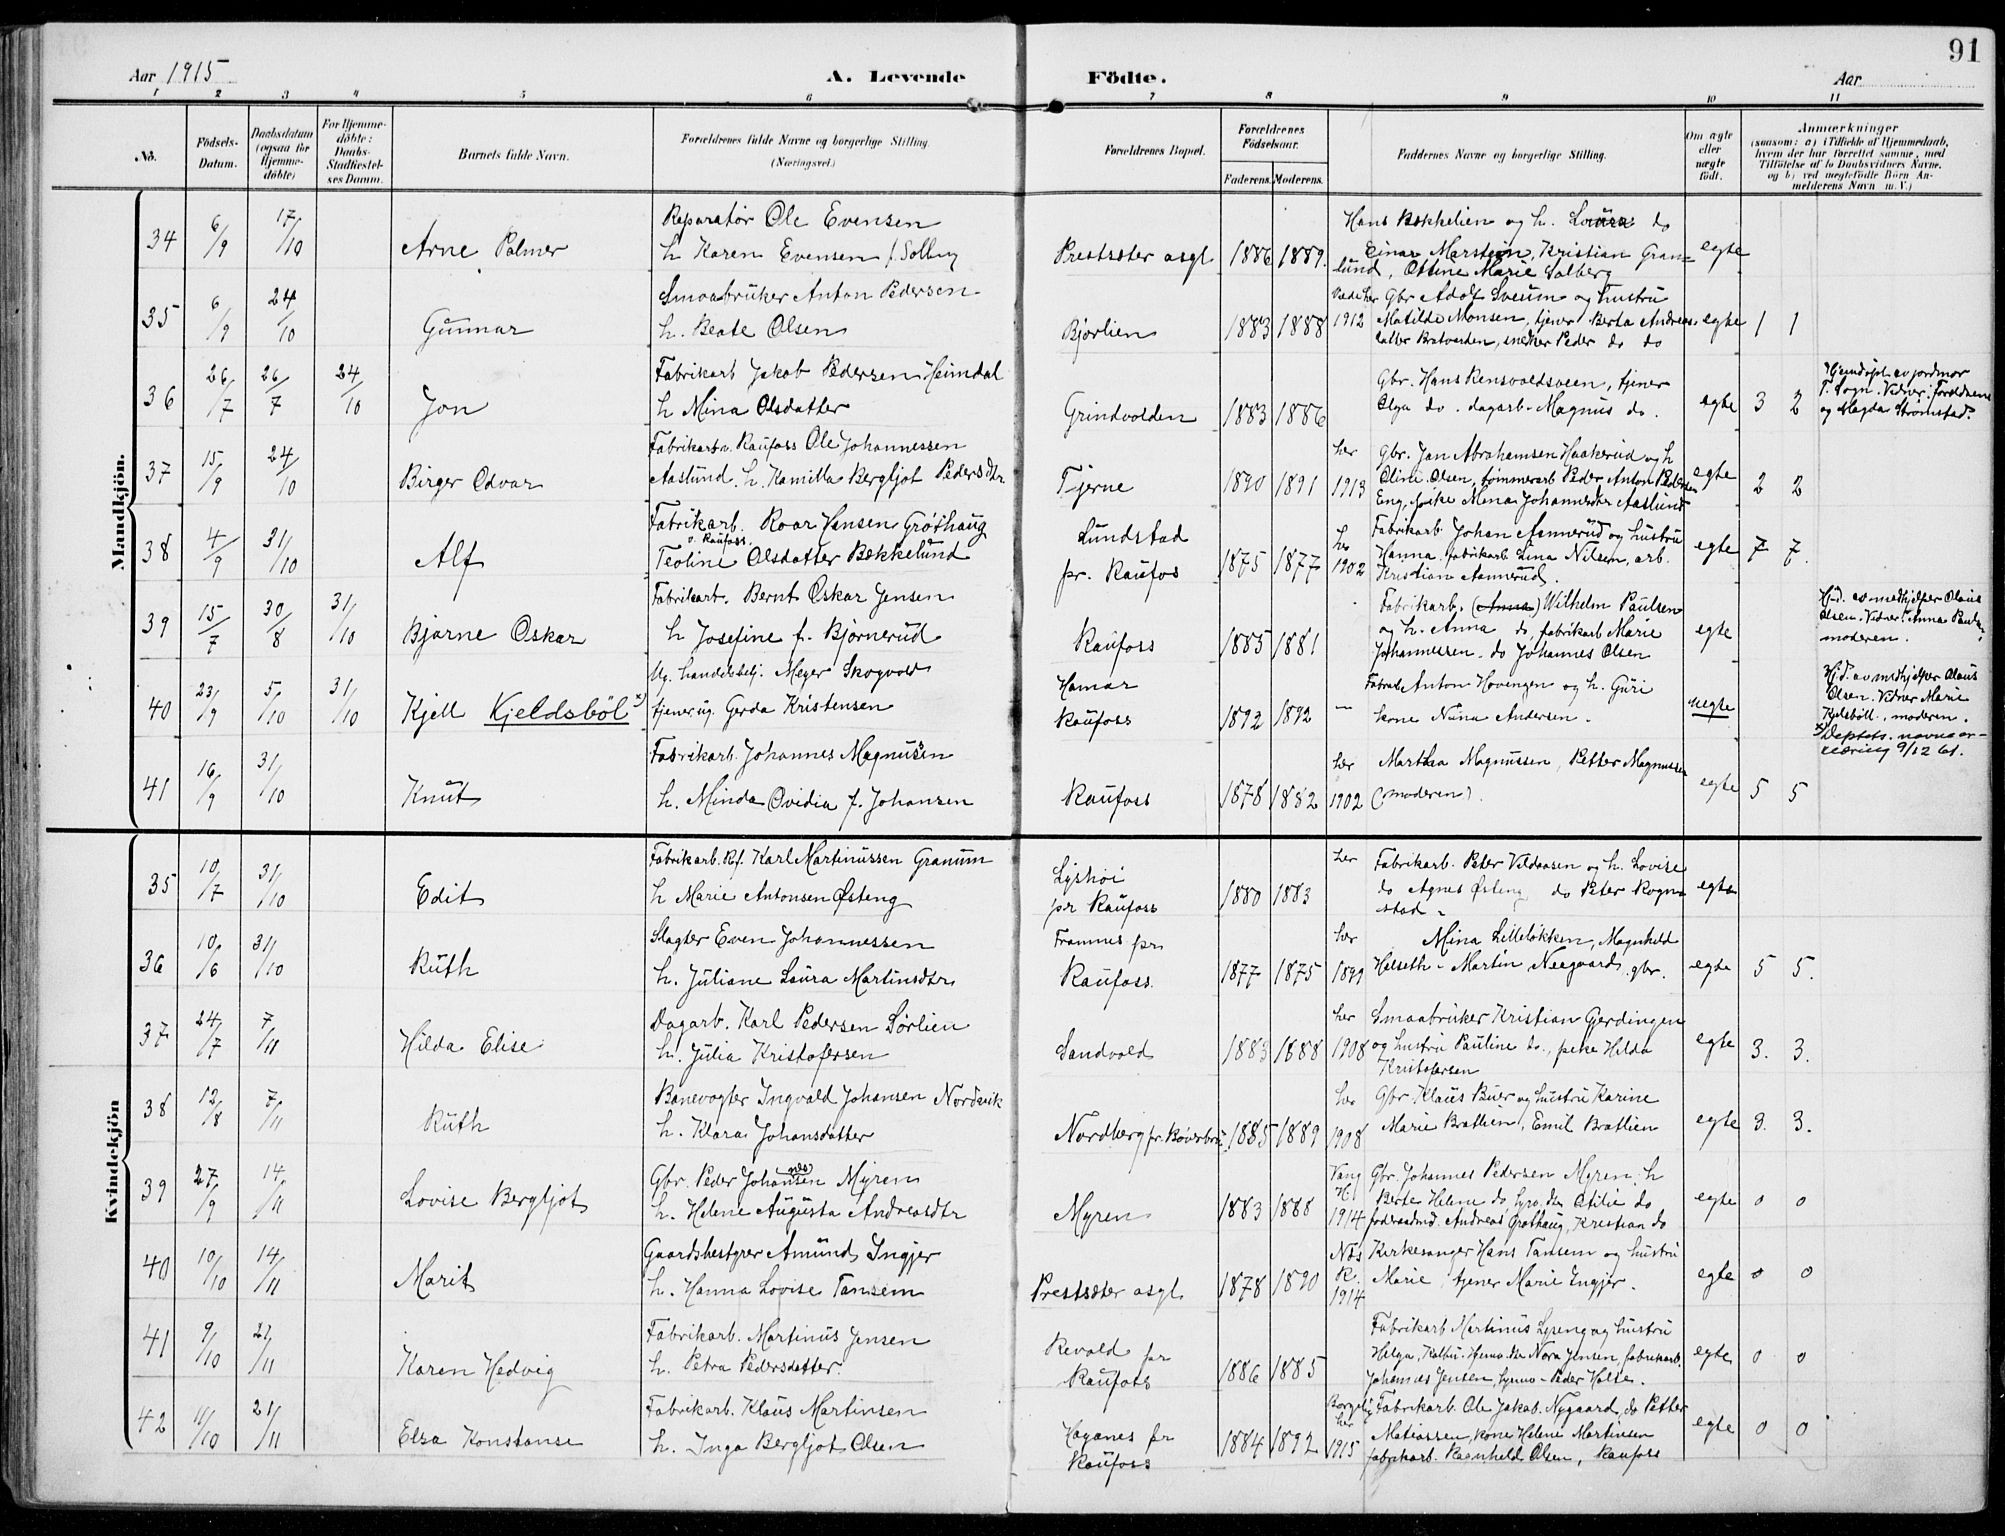 91
Aar 1915
A. Levende Födte.
Aar
1 2 3 4 5 6 7 8 9 10 11
No.
Födsels-Datum.
Daabsdatum (ogsaa for Hjemme-döbte)
For Hjemme-döbte: Daabs-Stadfæstelses Datum.
Barnets fulde Navn.
Forældrenes fulde Navne og borgerlige Stilling. (Næringsvei.)
Forældrenes Bopæl.
Forældrenes Födselsaar.
Faderens. Moderens.
Faddernes Navne og borgerlige Stilling.
Om ægte eller uægte födt.
Anmærkninger
(saasom: a) i Tilfælde af Hjemmedaab, hvem der har forrettet samme, med Tilföielse af to Daabsvidners Navne. og b) ved uægtefödte Börn Anmelderens Navn m. V.)
Mandkjön.
34 6/9 17/10 Arne Palmer
Reparatør Ole Evensen
h Karen Evensen f. Solberg
Prestsæter asgl. 1886 1889.
Hans Bekkelien og h. Laura do
Einar Marstein, Kristian Gran=
lund, Ottine Marie Solberg
egte
35 6/9 24/10 Gunnar
Smaabruker Anton Pedersen
h. Beate Olsen
Bjørlien 1883 1888 1912
Gbr Adolf Sveum og hustru
Matilde Monsen, tjener Berta Andreas-
datter Bratvarden, snekker Peder do do
egte 1 1
36 26/7 26/7 24/10 Jon
Fabrikarb Jakob Pedersen Heimdal
h Mina Olsdatter
Grindvolden 1883 1886
Gbr. Hans Rensvoldsveen, tjener
Olga do. dagarb. Magnus do.
egte 3 2
Hjemdøpt av jordmor
T. Sogn. Vidner: Forældrene
og Magda Strømstad.
37 15/9 24/10 Birger Odvar
Fabrikarb. Raufoss Ole Johannessen
Aaslund. h. Kamilla Bergljot Pedersdtr.
Tjerne 1890 1891 her 1913
Gbr. Jan Abrahamsen Haakerud og h
Oline Olsen, tømmerarb Peder Anton Pedersen
Eng, pike Mina Johannesdtr Aaslund
egte 2 2
38 4/9 31/10 Alf
Fabrikarb. Roar Hansen Grøthaug
v. Raufoss.
Teoline Olsdatter Bækkelund
Lundstad
pr. Raufos 1875 1877 her 1902
Fabrikarb Johan Aannerud og hustru
Hanna. fabrikarb Lina Nilsen, arb.
Kristian Aannerud.
egte 7 7.
39 15/7 30/8 31/10 Bjarne Oskar
Fabrikarb. Bernt Oskar Jensen
h Josefine f. Bjørnerud
Raufoss 1885 1881
Fabrikarb. (Anna) Wilhelm Paulsen
og h. Anna do, fabrikarb Marie
Johannessen do Johannes Olsen
egte
Hj.d. av medhjelper Olaus
Olsen. Vidner: Anna Paulsen,
moderen.
40 23/9 5/10 31/10 Kjell Kjeldsböl x)
Ug. handelsbetj. Meyer Skogvold
tjener ug. Gerda Kristensen
Hamar
Raufoss 1892 1892 —
Fabrarb Anton Hovengen og h. Guri
kone Nina Andersen.
uegte
Hj.d. av medhjelper Olaus
Olsen. Vidner Marie
Kjelsböll, moderen.
x) Deptets. navneær-
klæring 9/12 61.
41 16/9 31/10 Knut
Fabrikarb. Johannes Magnussen
h. Minda Ovidia f. Johansen
Raufoss 1878 1882 her 1902
Martha Magnussen, Petter Magnussen
(moderen).
egte 5 5
Kvindekjön
35 10/7 31/10 Edit
Fabrikarb. Rf. Karl Martinussen Granum
h Marie Antonsen Østeng
Lyshøi
pr Raufoss 1880 1883 her
Fabrikarb. Peter Veldaasen og h. Lovise
do Agnes Østeng do Peter Rogne
stad
egte
36 10/6 31/10 Ruth
Slagter Even Johannessen
h. Juliane Laura Martinsdtr
Framnes pr
Raufoss. 1877 1875 her 1899
Mina Lilleløkken, Magnhild
Helseth - Martin Neegaard gbr.
egte 5 5.
37 24/7 7/11 Hilda Elise
Dagarb. Karl Pedersen Sørlien
h. Julia Kristofersen
Sandvold 1883 1888 her 1908
Smaabruker Kristian Gjerdingen
og hustru Pauline do., pike Hilda
Kristofersen
egte 3. 3.
38 12/8 7/11 Ruth
Banevogter Ingvald Johansen Nordvik
h. Klara Johansdatter
Nordberg pr. Bøverbru 1885 1889 her 1908
Gbr Klaus Buer og hustru Karine
Marie Bratlien, Emil Bratlien
egte 3. 3.
39 27/9 14/11 Lovise Bergljot
Gbr. Peder Johannessen Myren
h. Helene Augusta Andreasdtr
Myren 1883 1888 Vang H. 1914
Gbr. Johannes Pedersen Myren, h
Berte Helene do, gbr.dtr Otilie do
føderaadmd. Andreas Grøthaug, Kristian do
egte 0 0
40 10/10 14/11 Marit
Gaardsbestyrer Amund Ingjer
h. Hanna Lovise Tansem
Prestsæter asgl. 1878 1890 Næs R. 1914
Kirkesanger Hans Tansem og hustru
Marie, tjener Marie Ingjer.
egte 0 0
41 9/10 21/11 Karen Hedvig
Fabrikarb. Martinus Jensen
h. Petra Pedersdatter.
Revold pr
Raufoss 1886 1885
Fabrikarb Martinus Lyseng og hustru
Helga, Nora Jensen, fabrikarb.
Johannes Jensen, Peder Holte.
egte 0 0
42 11/10 21/11 Elsa Konstanse
Fabrikarb. Klaus Martinsen
h. Inga Bergljot Olsen
Haganes pr
Raufoss 1884 1892 her 1915
Fabrikarb. Ole Jakob Nygaard, do Petter
Matiassen, kone Helene Martinsen
fabrikarb. Ragnhild Olsen, Raufoss
egte 0 0